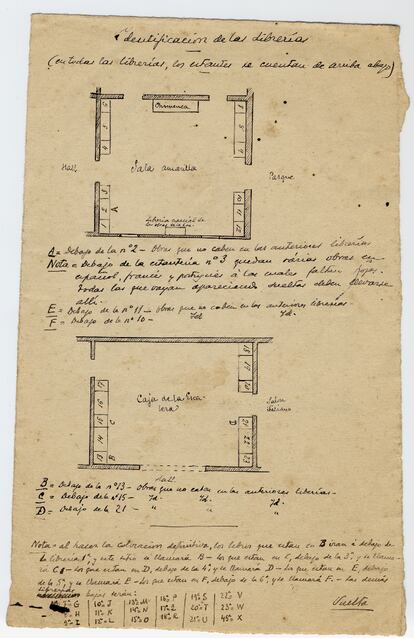 Identificación de las Librerías
(en todas las librerías, los estantes se cuentan de arriba abajo)
Chimenea
Hall
Sala amarilla
Parque
A
Librería especial de
A = Debajo de la nº 2 - Obras que no caben en las anteriores librerías
Nota = Debajo de la estantería nº 3 quedan várias obras en
español, francés y portugués á las cuales faltan hojas.
todas las que vayan apareciendo sueltas deben llevarse
allí.
E = Debajo de la nº 11 - obras que no caben en las anteriores librerías
F = Debajo de la nº 10 - Id. Id.
Caja de la Esca
lera
Salon
C
D
B
Hall
B = Debajo de la nº 13 - Obras que no caben en las anteriores librerías.
C = Debajo de la nº 15 - Id. Id.
D = Debajo de la 21 - " " "
Nota = al hacer la colocación definitiva, los libros que estan en B iran á debajo de
la librería 1ª, y este sitio se llamará B - los que estan en C, debajo de la 3ª, y se llama-
rá C - los que estan en D, debajo de la 4ª y se llamará D - los que estan en E, debajo
de la 5ª, y se llamará E - los que estan en F, debajo de la 6ª, y se llamará F. - Las demás
librerías
bajas serán:
7ª G 10ª J 13ª M 16ª P 19ª S 22ª V
8ª H 11ª K 14ª N 17ª Q 20ª T 23ª W
9ª I 12ª L 15ª O 18ª R 21ª U 45ª X
Vuelta